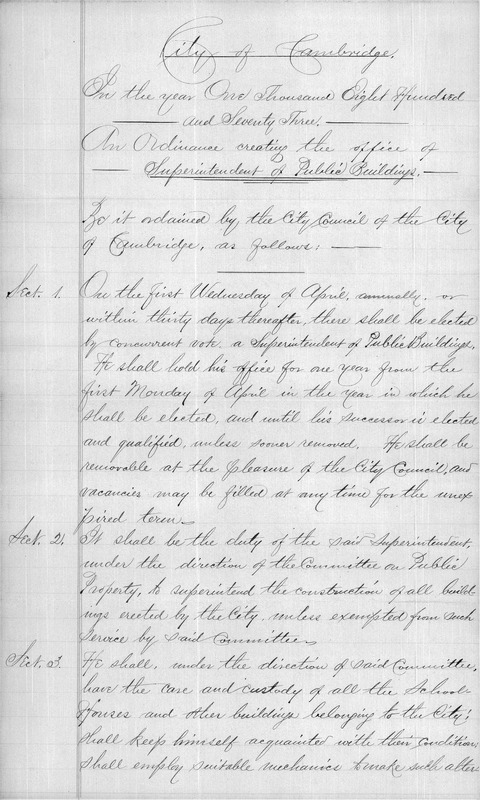 City of Cambridge.
In the year One Thousand Eight Hundred
and Seventy Three.
An Ordinance creating the office of
Superintendent of Public Buildings.
Be it ordained by the City Council of the City
of Cambridge, as follows:
Sect. 1. On the first Wednesday of April, annually, or
within thirty days thereafter, there shall be elected
by concurrent vote, a Superintendent of Public Buildings.
He shall hold his office for one year from the
first Monday of April in the year in which he
shall be elected, and until his successor is elected
and qualified, unless sooner removed. He shall be
removable at the pleasure of the City Council, and
vacancies may be filled at any time for the unex
pired term.
Sect. 2. It shall be the duty of the said Superintendent,
under the direction of the Committee on Public
Property, to superintend the construction of all build-
ings erected by the City, unless exempted from such
service by said Committee.
Sect. 3. He shall, under the direction of said Committee,
have the care and custody of all the School-
Houses and other buildings belonging to the City;
shall keep himself acquainted with their condition;
shall employ suitable mechanics to make such alter-